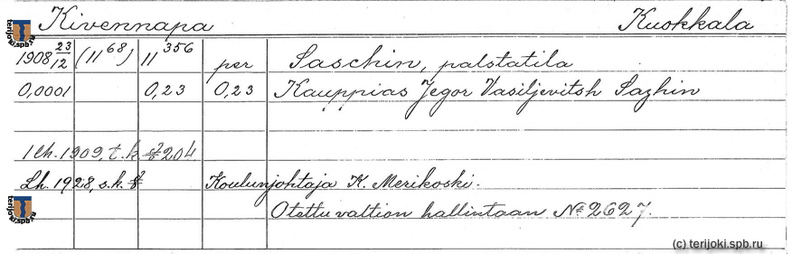 Kivennapa Kuokkala
1908 23/12 (11 68) 11 356 per Saschin, palstatila
0,0001 0,23 0,23 Kauppias Jegor Vasiljevitsh Sazhin
1 lh. 1909, t.k. § 204
Lh. 1928, s.k. § Koulunjohtaja K. Merikoski.
Otettu valtion hallintaan № 2627.
(c) terijoki.spb.ru